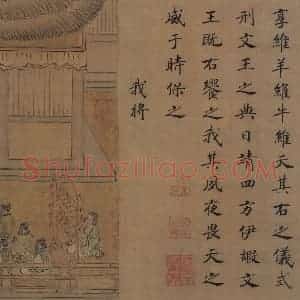 享維羊維牛維天其右之儀式
刑文王之典日靖四方伊嘏文
王既右饗之我其夙夜畏天之
威于時保之
我將
Shufaziliao.com